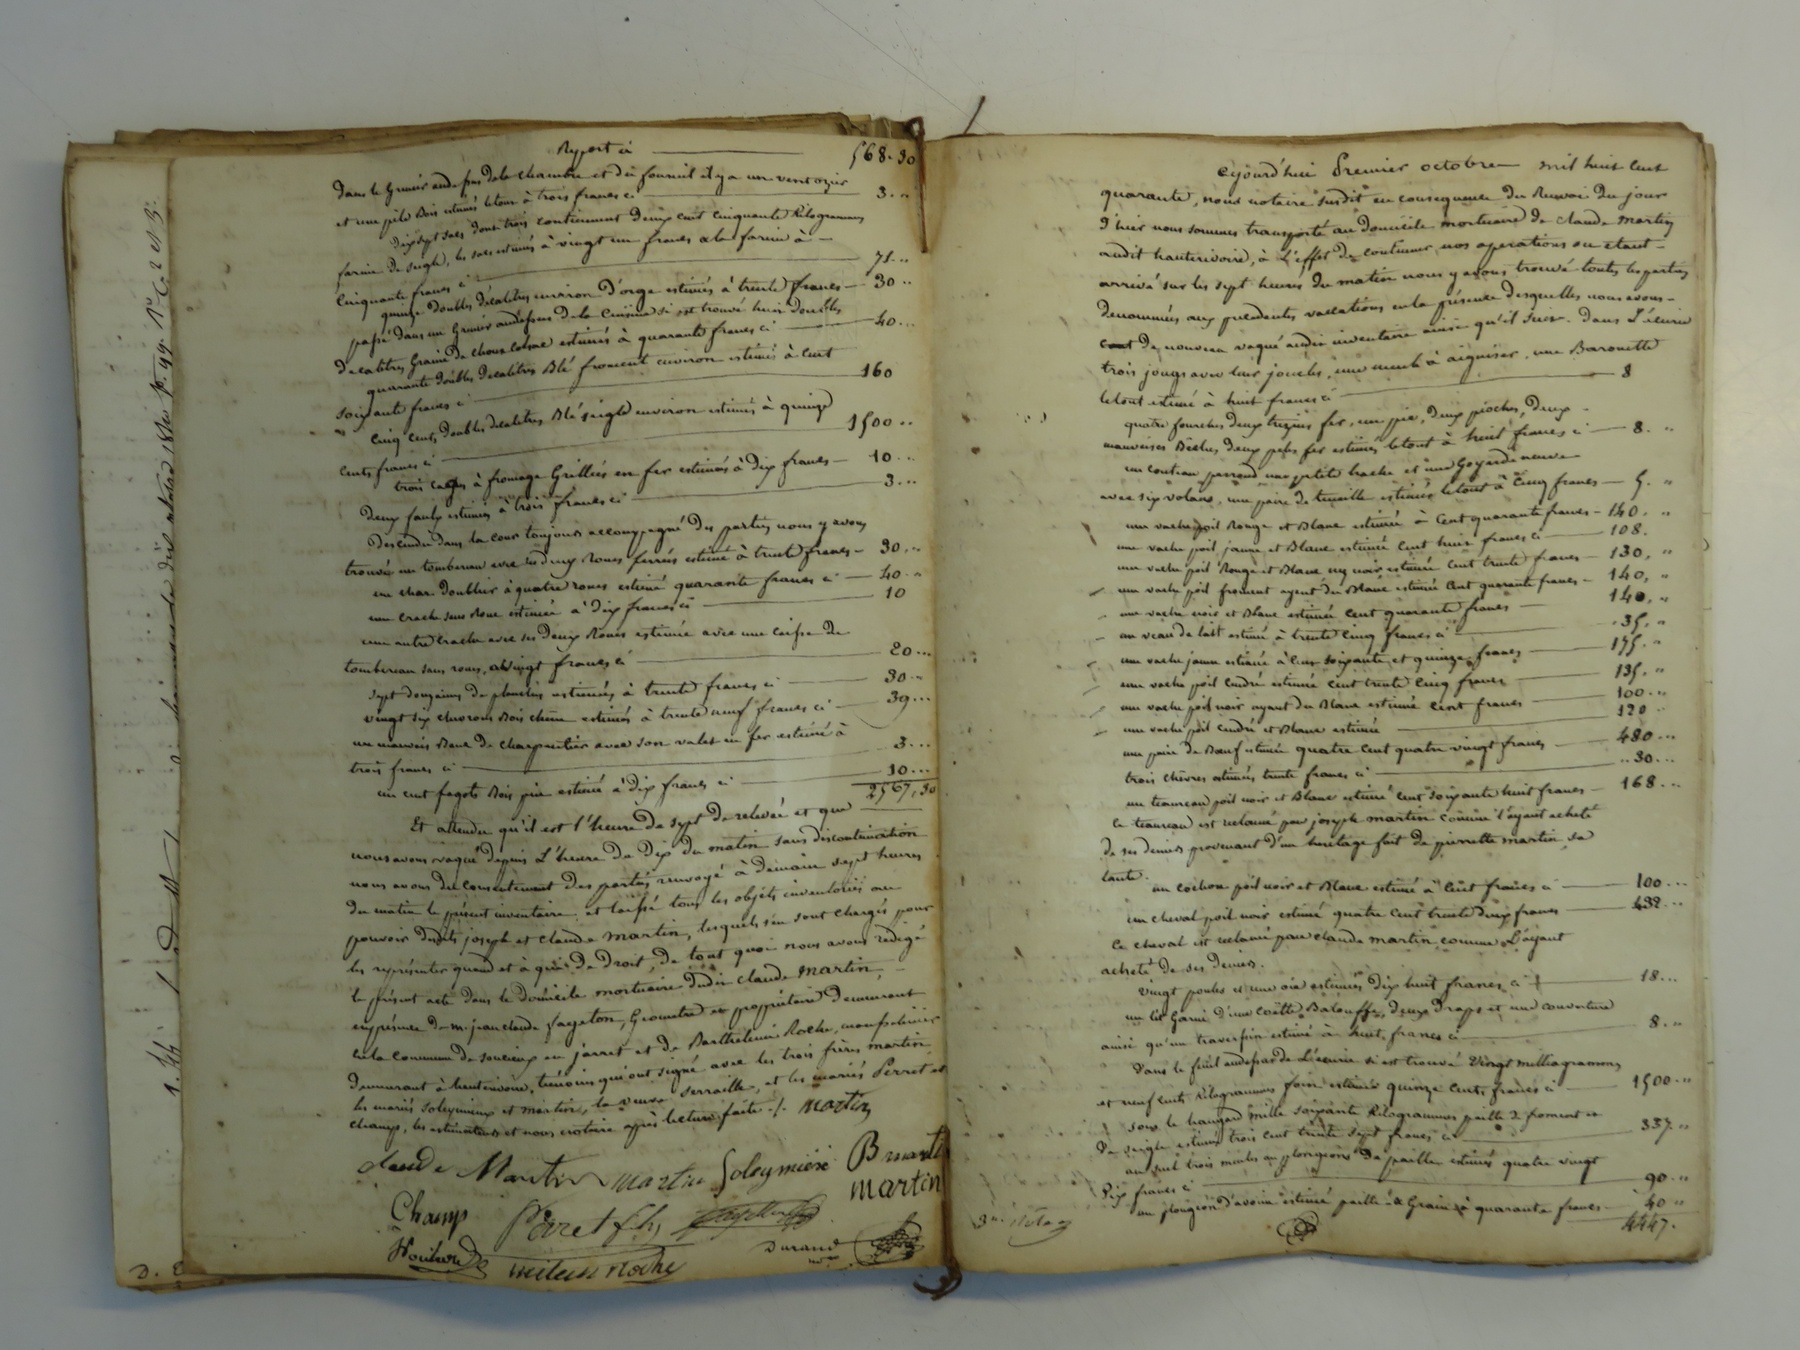 Report ci 568.30
dans le Grenier audessus de la chambre et du fournil il y a un
et une pele Bois estimés le tout à trois francs ci 3..
Dix sept sacs dont trois contiennent deux cent cinquante Kilogrammes
farine de seigle, les sacs estimés à vingt un francs et la farine à
Cinquante francs ci 71..
quinze doubles décalitres environ d'orge estimés à trente francs 30..
passé dans un Grenier audessus de la Cuisine si est trouvé huit doubles
Décalitres Graine de choux Colsac estimés à quarante francs ci 40..
quarante doubles Décalitres Blé froment environ estimés à Cent
soixante francs ci 160
Cinq cents doubles décalitres Blé seigle environ estimés à quinze
Cents francs ci 1500..
trois cages à fromage Grillées en fer estimés à dix francs 10..
deux faulx estimées à trois francs ci 3...
Descendu dans la cour toujours accompagné des parties nous y avons
trouvé un tombereau avec ses deux Roues ferrées estimé à trente francs 30..
un char doublier à quatre roues estimé quarante francs ci 40..
une crache sans Roue estimée à dix francs ci 10
une autre crache avec ses deux Roues estimée avec une caisse de
tombereau sans roues, à vingt francs ci 20...
sept douzaines de planches estimées à trente francs ci 30..
vingt six chevrons Bois chêne estimés à trente neuf francs ci 39...
un mauvais Banc de charpentier avec son valet en fer estimé à
trois francs ci 3...
un cent fagots Bois pin estimé à dix francs ci 10...
2567,30
Et attendu qu'il est l'heure de sept de relevée et que
nous avons vaqué depuis L'heure de Dix du matin sans discontinuation
nous avons du consentement des parties renvoyé à demain sept heures
du matin le présent inventaire, et laissé tous les objets inventoriés au
pouvoir desdits joseph et claude martin, lesquels s'en sont chargés pour
les représenter quand et à qui de Droit, de tout quoi nous avons redigé
le présent acte dans le domicile mortuaire dudit Claude martin,
en présence de m. jean claude fayeton, Géometre et propriétaire demeurant
en la commune de soucieux en jarret et de Barthelemi Roche,
demeurant à hauterivoire, témoins qui ont signé avec les trois frères martin
les mariés Soleymieux et martin, la veuve Serraille, et les mariés Perret et
champ, les estimateurs et nous notaire après lecture faite ./. martin
claude Martin martin Soleymiére Bruart
martin
Champ Péret fils
Durand
Roche
Cejourd'hui Premier octobre mil huit cent
quarante, nous notaire susdit en consequence du Renvoi du jour
d'hier nous sommes transporté au Domicile mortuaire de claude martin
audit hauterivoire, à L'effet de continuer nos operations ou etant
arrivé sur les sept heures du matin nous y avons trouvé toutes les parties
denommées aux precedentes vacations en la présence desquelles nous avons
de nouveau vaqué audit inventaire ainsi qu'il suit. Dans L'écurie
trois jougs avec leur joucles, une meule à aiguiser, une Barouette
le tout estimé à huit francs ci 8
quatre fourches deux fer, un pic, deux pioches, deux
mauvaises Bêches deux peles fer estimés le tout à huit francs ci 8. "
un couteau une petite hache et une Goyarde neuve
avec six volans, une paire de tenaille estimés le tout à Cinq francs 5. "
une vache poil Rouge et Blanc estimée à Cent quarante francs 140. "
une vache poil jaune et Blanc estimée Cent huit francs ci 108.
une vache poil Rouge et Blanc nez noir estimée Cent trente francs 130, "
une vache poil froment ayant du Blanc estimée Cent quarante francs 140, "
une vache noir et Blanc estimée Cent quarante francs 140, "
un veau de lait estimé à trente Cinq francs ci 35, "
une vache jaune estimée à Cent soixante et quinze francs 175, "
une vache poil Cendré estimée Cent trente Cinq francs 135, "
une vache poil noir ayant du Blanc estimée Cent francs 100..
une vache poil Cendré et Blanc estimée 120
une paire de Bœuf estimée quatre Cent quatre vingt francs 480...
trois chèvres estimées trente francs ci 30...
un taureau poil noir et Blanc estimé Cent soixante huit francs 168...
Ce taureau est reclamé par joseph martin comme l'ayant acheté
de ses deniers provenant d'un heritage fait de pierrette martin, sa
tante.
un cochon poil noir et Blanc estimé à Cent francs ci 100...
un cheval poil noir estimé quatre Cent trente deux francs 432...
Ce cheval est reclamé par claude martin comme L'ayant
acheté de ses deniers.
Vingt poules et une oie estimées dix huit francs ci 18...
un lit Garni d'une coëtte Balouffe, deux Draps et une couverture
ainsi qu'un traversin estimé à huit francs ci 8. "
Dans le fenil audessus de L'écurie si est trouvé Vingt milliagrammes
et neuf cents Kilogrammes foin estimés quinze Cents francs ci 1500..
sous le hangard mille soixante Kilogrammes paille de froment et
de seigle estimés trois Cent trente sept francs ci 337. "
au suel trois meules ou plongeons de paille estimés quatre vingt
Dix francs ci 90..
un plongeon d'avoine estimé paille & Grain à quarante francs 40 "
4447.